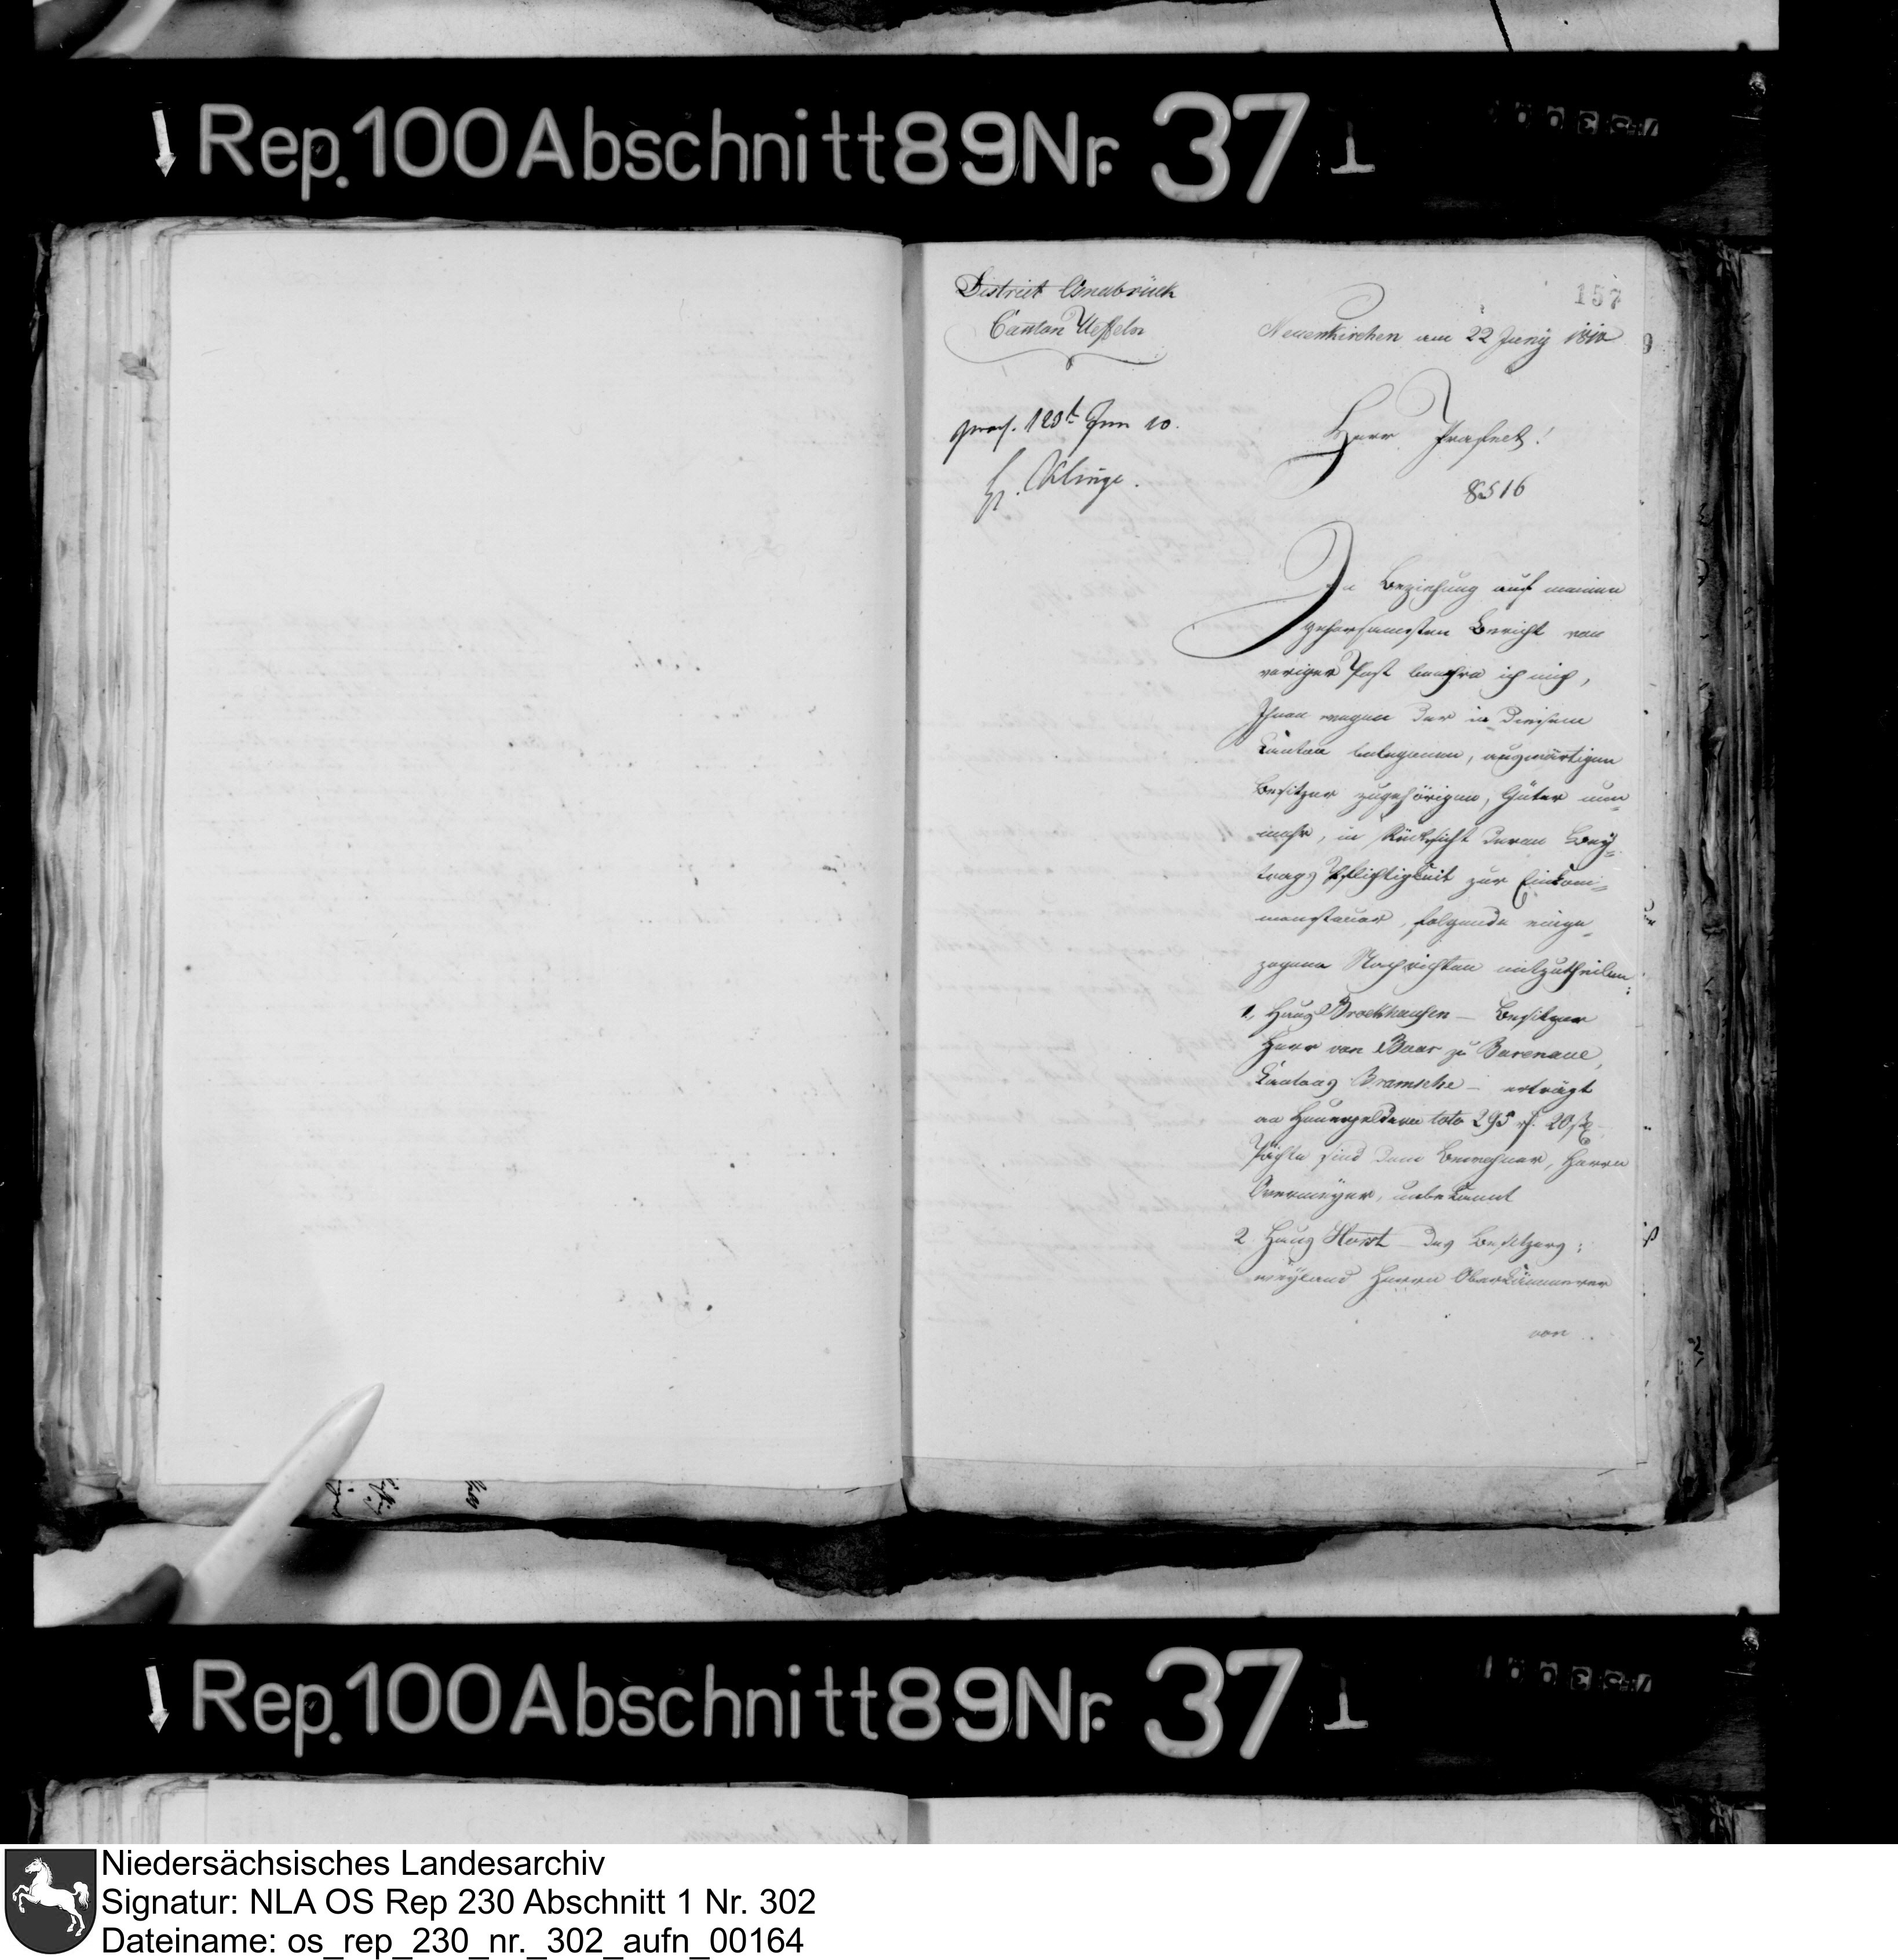 Rep. 100 Abschnitt 89 Nr. 37 I
157
District Osnabrück
Canton Ueffeln
Neuenkirchen am 22 Juny 1810
Herr Präfect!
8516
H. Klinge.
In Beziehung auf meinen
gehorsamsten Bericht von
voriger Post beehre ich mich,
Ihnen wegen der in diesem
Canton belegenen, auswärtigen
Besitzer zugehörigen, Güter nun=
mehr, in Rücksicht deren Bey=
trags Pflichtigkeit zur Einkom=
menssteuer, folgende einge=
zogene Nachrichten mitzutheilen:
1, Haus Brockhausen – Besitzer
Herr von Baar zu Barenaue,
Cantons Bramsche – erträgt
an Heuergeldern toto 295 rt. 20 ß
Pächte sind dem Berechner, Herrn
Overmeyer, unbekannt
2. Haus Horst – des Besitzers:
weyland Herrn Oberkämmerer
von
Rep. 100 Abschnitt 89 Nr. 37 I
Niedersächsisches Landesarchiv
Signatur: NLA OS Rep 230 Abschnitt 1 Nr. 302
Dateiname: os_rep_230_nr._302_aufn_00164